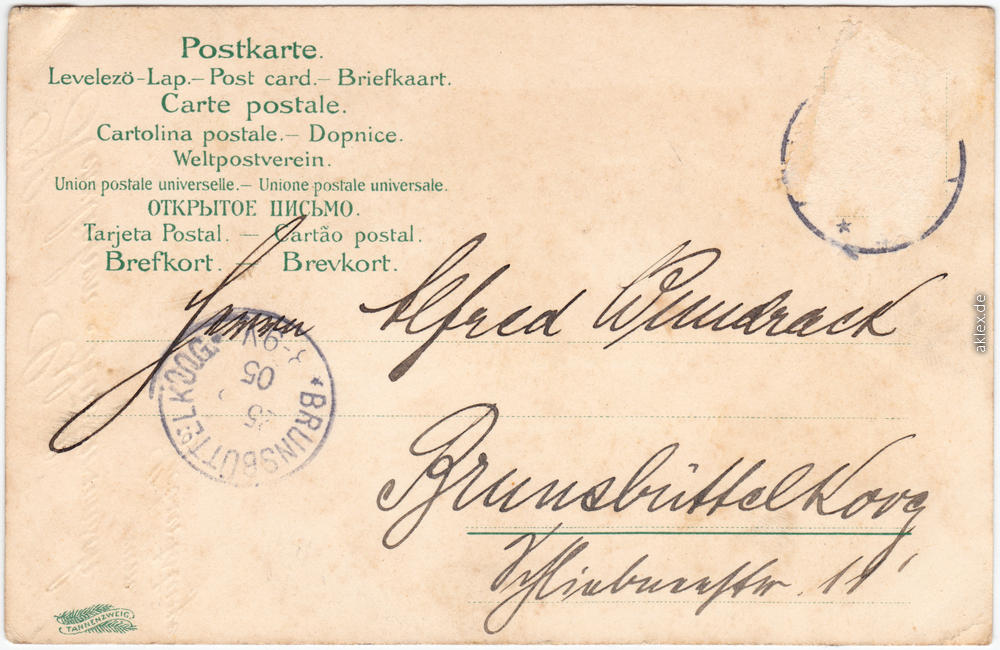 Postkarte.
Levelezö-Lap.— Post card.— Briefkaart.
Carte postale.
Cartolina postale.— Dopnice.
Weltpostverein.
Union postale universelle.— Unione postale universale.
ОТКРЫТОЕ ПИСЬМО.
Tarjeta Postal. — Cartão postal.
Brefkort. — Brevkort.
Herrn Alfred Wundrack
* BRUNSBÜTTELKOOG *
05
8-9V
BrunsbüttelKoog
11
TANNENZWEIG
aklex.de